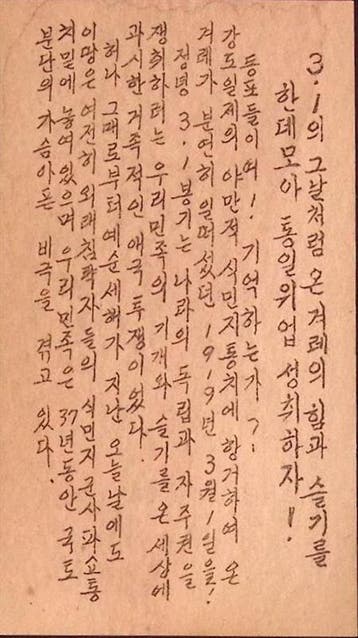 3.1의 그날처럼 온 겨레의 힘과 슬기를
한데모아 통일위업 성취하자!
동포들이여! 기억하는가?!
강도일제의 야만적 식민지통치에 항거하여 온
겨레가 분연히 일떠섰던 1919년 3월1일을!
정녕 3.1봉기는 나라의 독립과 자주권을
쟁취하려는 우리민족의 기개와 슬기를 온 세상에
과시한 거족적인 애국투쟁이였다.
허나 그때로부터 예순세해가 지난 오늘날에도
이땅은 여전히 외래침략자들의 식민지군사파쑈통
치밑에 놓여있으며 우리민족은 37년동안 국토
분단의 가슴아픈 비극을 겪고 있다.